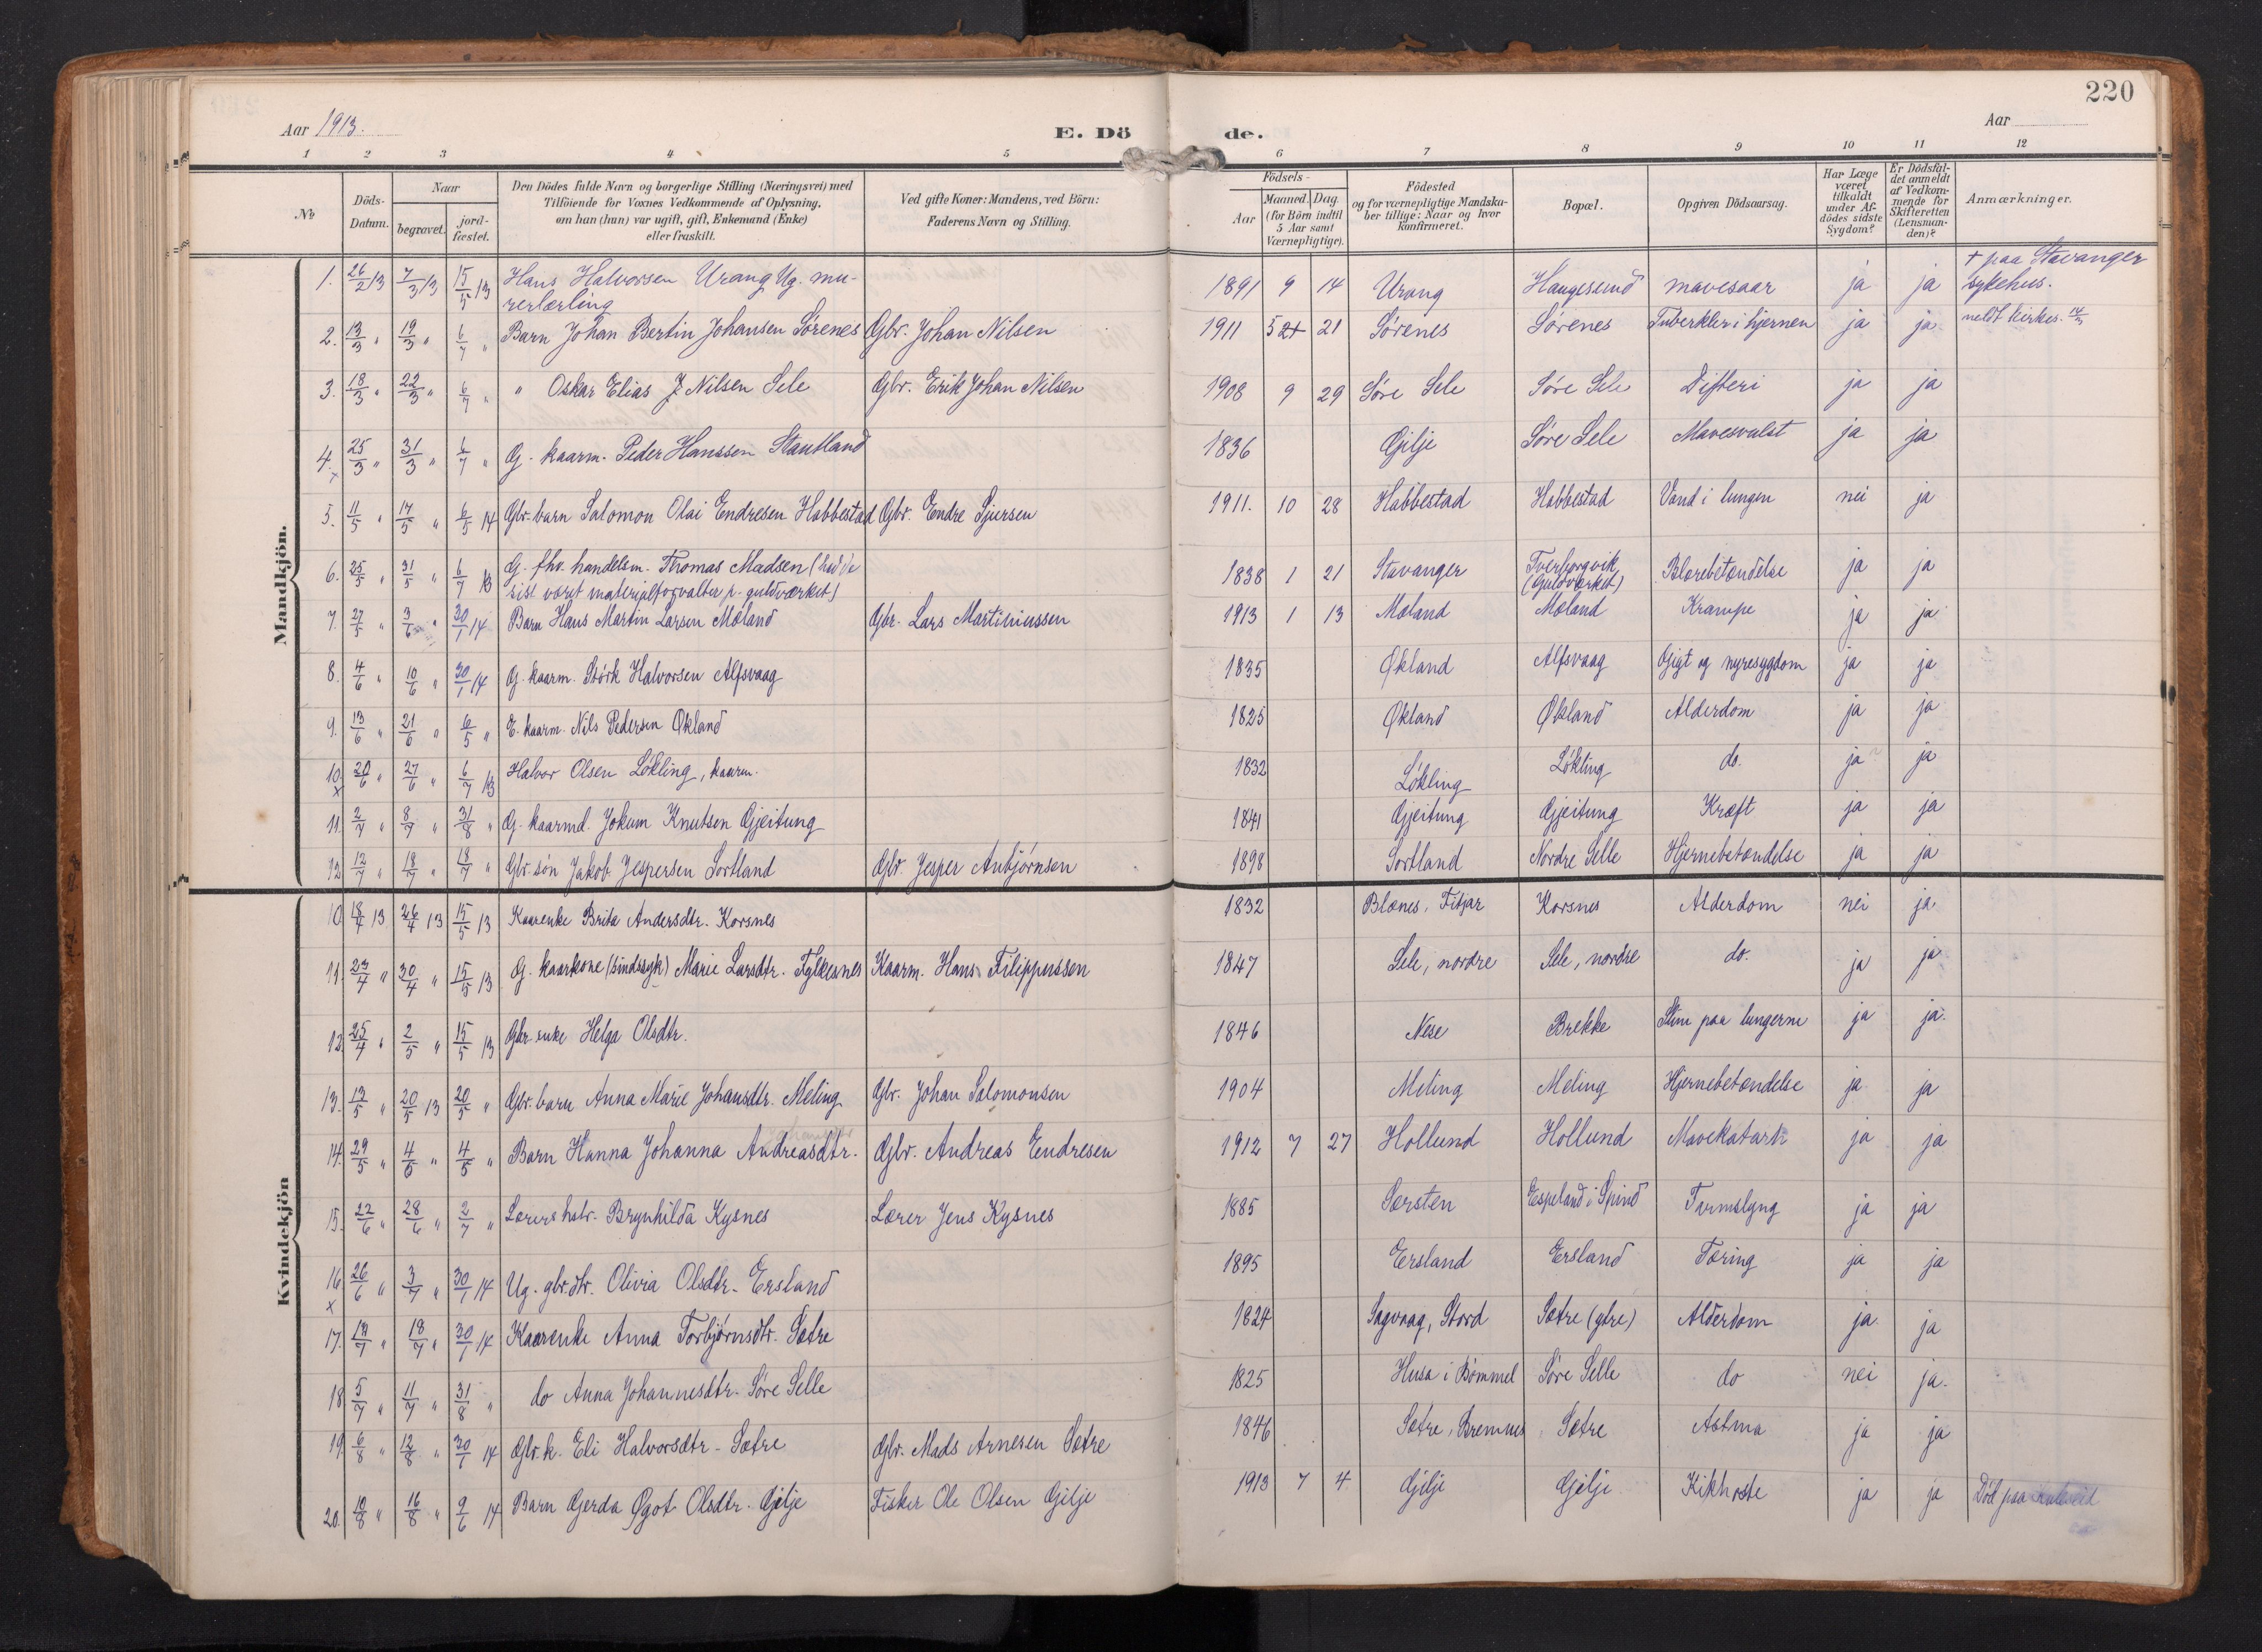 220
Aar 1913.
E. Dö de.
Aar
1 2 3 4 5 6 7 8 9 10 11 12
No
Döds-Datum.
Naar
begravet.
jord-fæstet.
Den Dödes fulde Navn og borgerlige Stilling (Næringsvei) med
Tilföiende for Voxnes Vedkommende af Oplysning,
om han (hun) var ugift, gift, Enkemand (Enke)
eller fraskilt.
Ved gifte Koner: Mandens, ved Börn:
Faderens Navn og Stilling.
Födsels-
Aar
Maaned. Dag.
(for Börn indtil
5 Aar samt
Værnepligtige).
Födested
og for værnepligtige Mandska-
ber tillige: Naar og hvor
konfirmeret.
Bopæl.
Opgiven Dödsaarsag.
Har Læge
været
tilkaldt
under Af-
dödes sidste
Sygdom?
Er Dödsfal-
det anmeldt
af Vedkom-
mende for
Skifteretten
(Lensman-
den)?
Anmærkninger.
Mandkjön.
1. 26/2 13 7/3 13 15/5 13 Hans Halvorsen Urang Ug. mu-
rerlærling 1891 9 14 Urang Haugesund mavesaar ja ja + paa Stavanger
sykehus.
2. 13/3 " 19/3 " 6/7 " Barn Johan Bertin Johansen Sørenes Gbr. Johan Nilsen 1911 5 21 Sørenes Sørenes Tuberkler i hjernen ja ja meldt kirkes.
3. 18/3 " 22/3 " 6/7 " " Oskar Elias J. Nilsen Sele Gbr. Erik Johan Nilsen 1908 9 29 Søre Sele Søre Sele Difteri ja ja
4. x 25/3 " 31/3 " 6/7 " G. kaarm. Peder Hanssen Stautland 1836 Gilje Søre Sele Mavesvulst ja ja
5. 11/5 " 17/5 " 6/5 14 Gbr. barn Salomon Olai Endresen Habbestad Gbr. Endre Sjursen 1911. 10 28 Habbestad Habbestad Vand i lungen nei ja
6. 25/5 " 31/5 " 6/7 13 G. fhv. handelsm. Thomas Madsen (
sist været materialforvalter p. guldværket) 1838 1 21 Stavanger Tverborgvik
(Guldværket) Blærebetændelse ja ja
7. 27/5 " 3/6 " 30/1 14 Barn Hans Martin Larsen Mæland Gbr. Lars Martiniussen 1913 1 13 Mæland Mæland Krampe ja ja
8. 4/6 " 10/6 " 30/1 14 G. kaarm. Størk Halvorsen Alfsvaag 1835 Økland Alfsvaag Gigt og nyresygdom ja ja
9. 13/6 " 21/6 " 6/5 " E. kaarm. Nils Pedersen Økland 1825 Økland Økland Alderdom ja ja
10. x 20/6 " 27/6 " 6/7 13 Halvor Olsen Løkling, kaarm. 1832 Løkling Løkling do. ja ja
11. 2/7 " 8/7 " 31/8 " G. kaarmd. Jokum Knutsen Gjeitung 1841 Gjeitung Gjeitung Kræft ja ja
12. 12/7 " 18/7 " 18/7 " Gbr. søn Jakob Jespersen Sortland Gbr. Jesper Anbjørnsen 1898 Sortland Nordre Selle Hjernebetændelse ja ja
Kvindekjön
10. 18/4 13 26/4 13 15/5 13 Kaarenke Brita Andersdtr. Korsnes 1832 Blænes, Fitjar Korsnes Alderdom nei ja.
11. 23/4 " 30/4 " 15/5 13 G. kaarkone (sindssyk) Marie Larsdtr. Fylkesnes Kaarm. Hans Filippussen 1847 Sele, nordre Sele, nordre do. ja ja
12. 25/4 " 2/5 " 15/5 13 Gbr. enke Helga Olsdtr. 1846 Nese Brekke Slim paa lungerne ja ja.
13. 13/5 " 20/5 13 20/5 " Gbr. barn Anna Marie Johansdtr. Meling Gbr. Johan Salomonsen 1904 Meling Meling Hjernebetændelse ja ja
14. 29/5 " 4/6 " 4/5 " Barn Hanna Johanna Andreasdtr. Gbr. Andreas Endresen 1912 7 27 Hollund Hollund Mavekatarh ja ja
15. 22/6 " 28/6 " 2/7 " Lærers hstr. Brynhilda Kysnes Lærer Jens Kysnes 1885 Særsten Espeland i Spind Tarmslyng ja ja
16. x 26/6 " 3/7 " 30/1 14 Ug. gbr. dtr. Olivia Olsdtr. Ersland 1895 Eersland Ersland Tæring ja ja
17. 12/7 " 18/7 " 30/1 14 Kaarenke Anna Torbjørnsdtr. Sætre 1824 Sagvaag, Stord Sætre (ytre) Alderdom ja ja
18. 5/7 " 11/7 " 31/8 " do Anna Johannesdtr. Søre Selle 1825 Husa i Bømmel Søre Selle do nei ja.
19. 6/8 " 12/8 " 30/1 14 Gbr. k. Eli Halvorsdtr. Sætre Gbr. Mads Arnesen Sætre 1846 Sætre, Bremnes Sætre Astma ja ja
20. 10/8 " 16/8 " 9/6 14 Barn Gerda Ågot Olsdtr. Gilje Fisker Ole Olsen Gilje 1913 7 4 Gilje Gilje Kikhoste ja ja Död paa